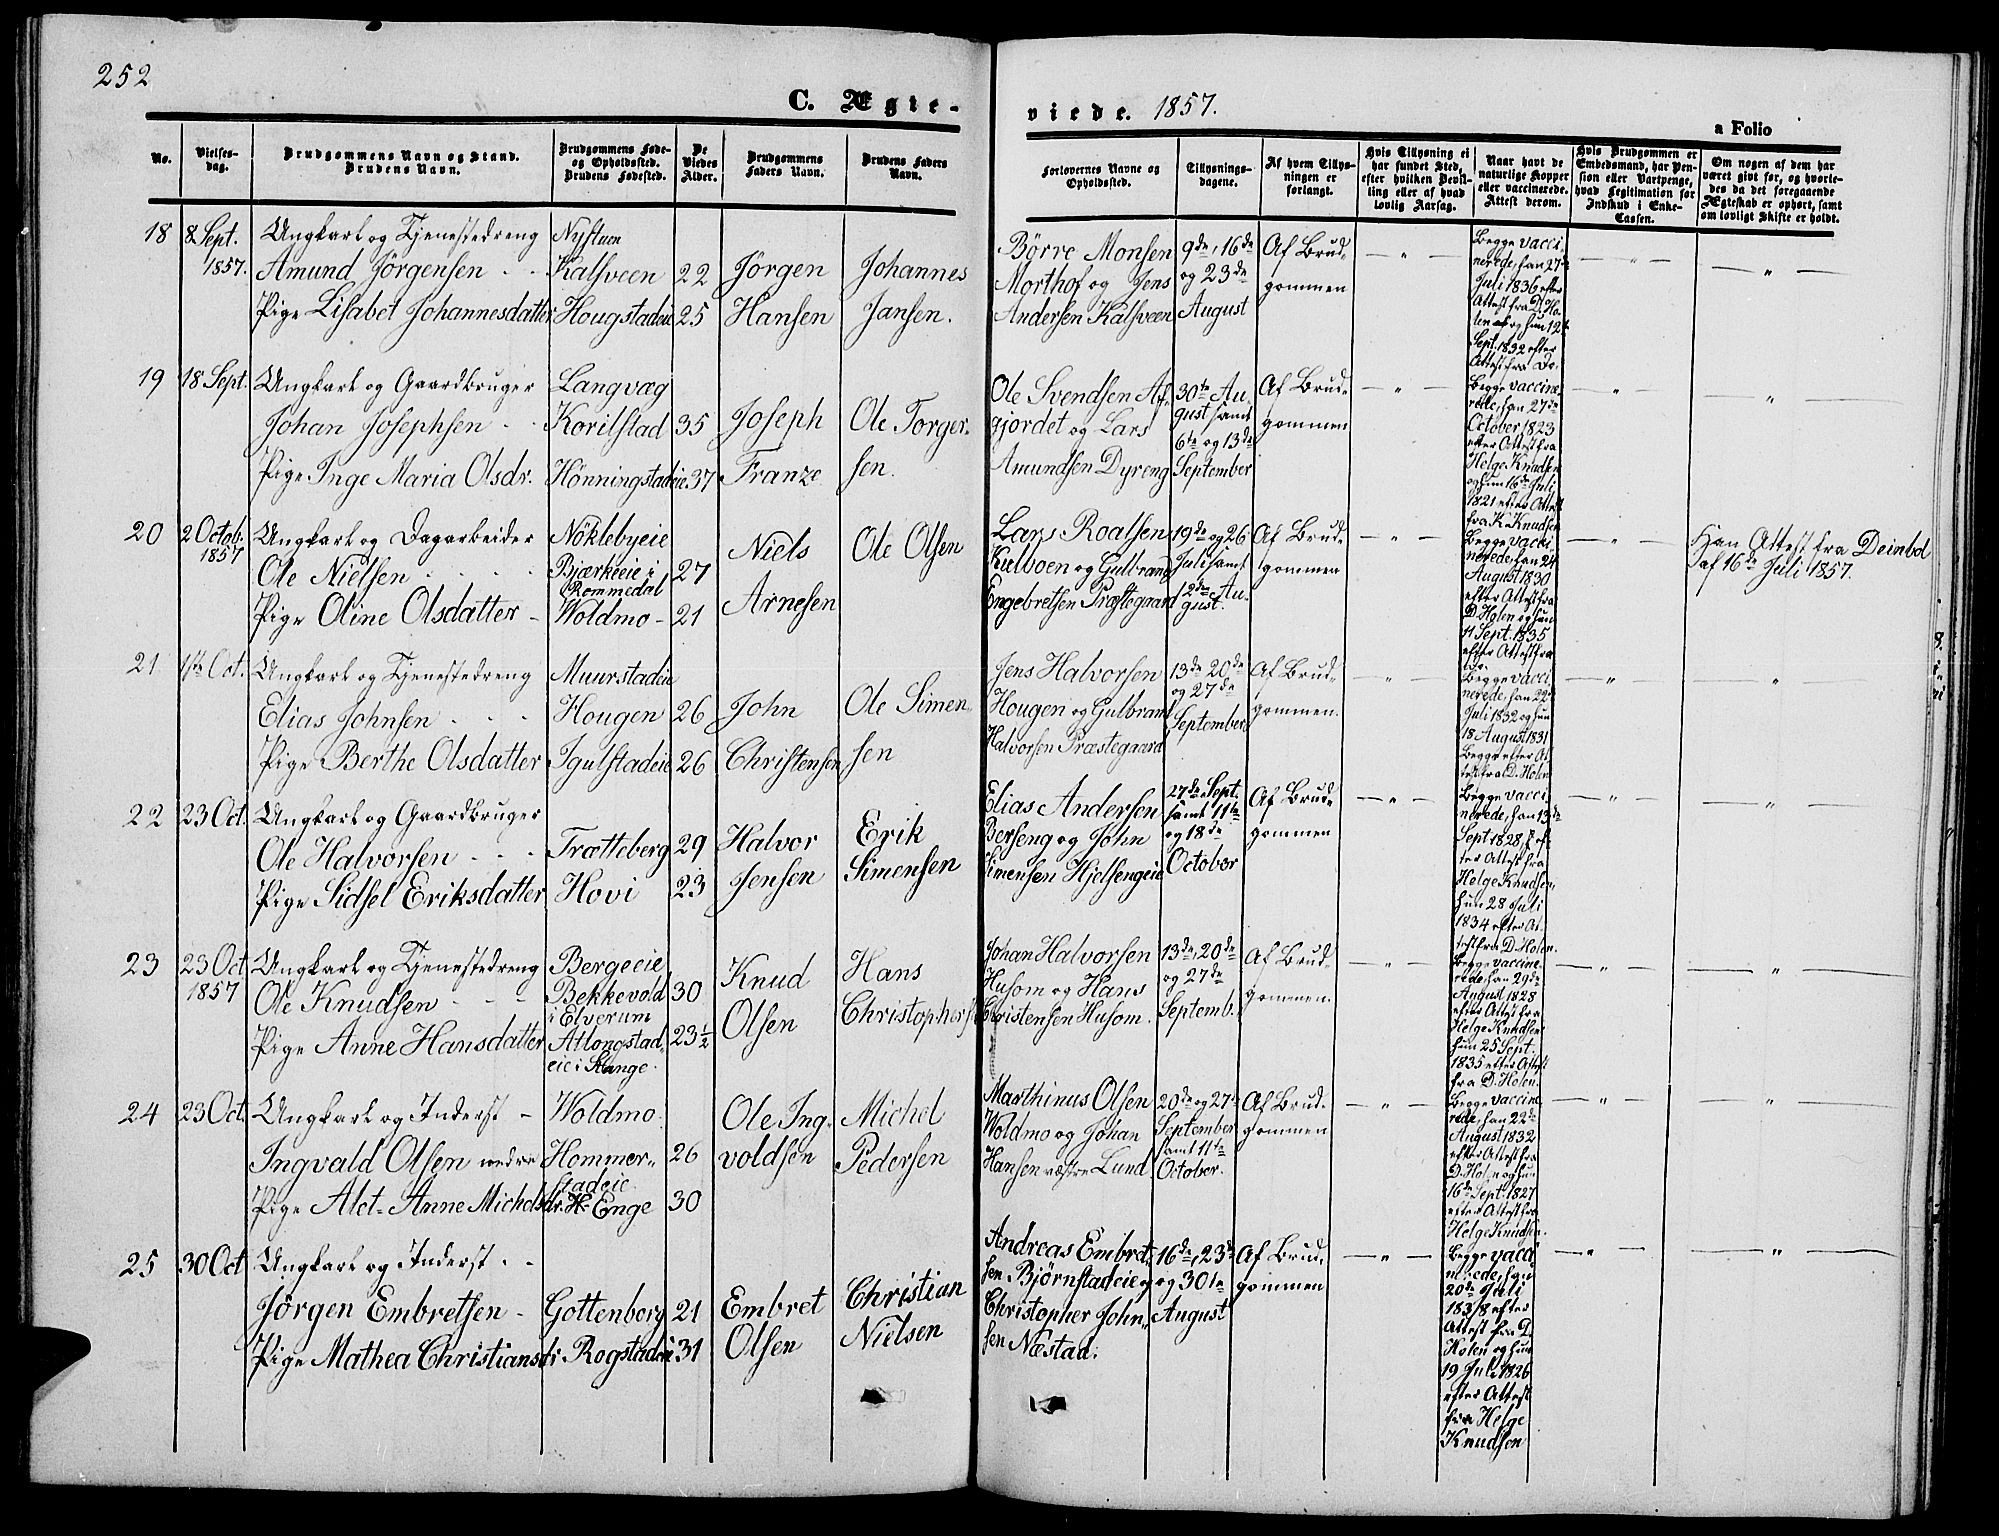 252
C. Ægte-
viede. 1857.
a Folio
No.
Vielses-
dag.
Brudgommens Navn og Stand.
Brudens Navn.
Brudgommens Føde-
og Opholdssted.
Brudens Fødested.
De
Viedes
Alder.
Brudgommens
Faders Navn.
Brudens Faders
Navn.
Forlovernes Navne og
Opholdssted.
Tillysnings-
dagene.
Af hvem Tillys-
ningen er
forlangt.
Hvis Tillysning ei
har fundet Sted,
efter hvilken Bevil-
ling eller af hvad
lovlig Aarsag.
Naar havt de
naturlige Kopper
eller vaccinerede.
Attest derom.
Hvis Brudgommen er
Embedsmand, har Pen-
sion eller Vartpenge,
hvad Legitimation for
Indskud i Enke-
Cassen.
Om nogen af dem har
været givt før, og hvorle-
des da det foregaaende
Ægteskab er ophørt, samt
om lovligt Skifte er holdt.
18
8 Sept.
1857.
Ungkarl og Tjenestedreng
Amund Jörgensen
Pige Lisabet Johannesdatter
Nystuen
Kalsveen
Hougstadeie
22
25
Jörgen
Hansen
Johannes
Jansen.
Börre Monsen
Morthof og Jens
Andersen Kalsveen
9de, 16de
og 23de
August
Af Brud-
gommen
Begge vacci-
nerede, han 27de
Juli 1836 efter
Attest fra D. Ho-
len og hun 12t
Sept. 1832 efter
Attest fra Do.
19
18 Sept.
Ungkarl og Gaardbruger
Johan Josephsen
Pige Inge Maria Olsdr.
Langvæg
Korilstad
Hönningstadeie
35
37
Joseph
Franze
Ole Torger-
sen.
Ole Svendsen Af-
gjordet og Lars
Amundsen Dyreng
30te Au-
gust samt
6te og 13de
September
Af Brud-
gommen
Begge vaccine-
rede, han 27de
October 1823
efter Attest fra
Helge Knudsen
og hun 16de Juli
1821 efter Attest
fra K. Knudsen
20
2 Octob.
1857
Ungkarl og Dagarbeider
Ole Nielsen
Pige Oline Olsdatter
Nöklebyeie
Bjærkeeie i
Rommedal
Woldmo
27
21
Niels
Arnesen
Ole Olsen
Lars Roalsen
Kulboen og Gulbrand
Engebretsen Præstegaard
19de og 26
Juli samt
2den Au-
gust.
Af Brud-
gommen
Begge vacci-
nerede, han 24
August 1830
efter Attest fra
D. Holen og hun
11 Sept. 1835
efter Attest fra
Do.
Han Attest fra Deinbol
af 16de Juli 1857.
21
1ste Oct.
Ungkarl og Tjenestedreng
Elias Johnsen
Pige Berthe Olsdatter
Muurstadeie
Hougen
Igulstadeie
26
26
John
Christensen
Ole Simen-
sen
Jens Halvorsen
Hougen og Gulbrand
Halvorsen Præstegaard
13de 20de
og 27de
September
Af Brud-
gommen.
Begge vacci-
nerede, han 22de
Juli 1832 og hun
18 August 1831
Begge efter At-
test fra D. Holen
22
23 Oct.
Ungkarl og Gaardbruger
Ole Halvorsen
Pige Sidsel Eriksdatter
Trætteberg
Hovi
29
23
Halvor
Jensen
Erik
Simensen
Elias Andersen
Berseng og John
Simensen Hjelsengeie
27de Sept.
samt 11te
og 18de
October
Af Brud-
gommen
Begge vacci-
nerede, han 13de
Sept 1828 ef-
ter Attest fra
Helge Knudsen,
hun 28 Juli
1834 efter At-
test fra D. Holen.
23
23 Oct
1857
Ungkarl og Tjenestedreng
Ole Knudsen
Pige Anne Hansdatter
Bergeeie
Bekkevold
i Elverum
Atlongstad-
eie i Stange.
30
23½
Knud
Olsen
Hans
Christophers
Johan Halvorsen
Husom og Hans
Christensen Husom.
13de, 20de
og 27de
Septemb.
Af Brud-
gommen.
Begge vaccine-
rede, han 29de
August 1828
efter Attest fra
Helge Knudsen
hun 25 Sept.
1835 efter Attest
fra D. Holen.
24
23 Oct.
Ungkarl og Inderst
Ingvald Olsen nedre
Pige Alet-Anne Michelsdr.
Woldmo
Hommer-
stadeie
H. Enge
26
30
Ole Ing-
voldsen
Michel
Pedersen
Marthinus Olsen
Woldmo og Johan
Hansen væstre Lund
20de og 27de
September
samt 11te
October.
Af Brud-
gommen
Begge vaccine-
rede, han 22de
August 1832
efter Attest fra
D. Holen og hun
16de Sept. 1827
efter Attest fra
Helge Knudsen.
25
30 Oct
Ungkarl og Inderst
Jörgen Embretsen
Pige Mathea Christiansd.
Gottenborg
Rogstadeie
21
31
Embret
Olsen
Christian
Nielsen
Andreas Embret-
sen Bjørnstadeie og
Christopher John-
sen Næstad.
16de, 23de
og 30te
August
Af Brud-
gommen
Begge vacci-
nerede, han
20de Juli
1838 efter
Attest fra D.
Holen og hun
19 Juli 1826
efter Attest
fra Helge
Knudsen